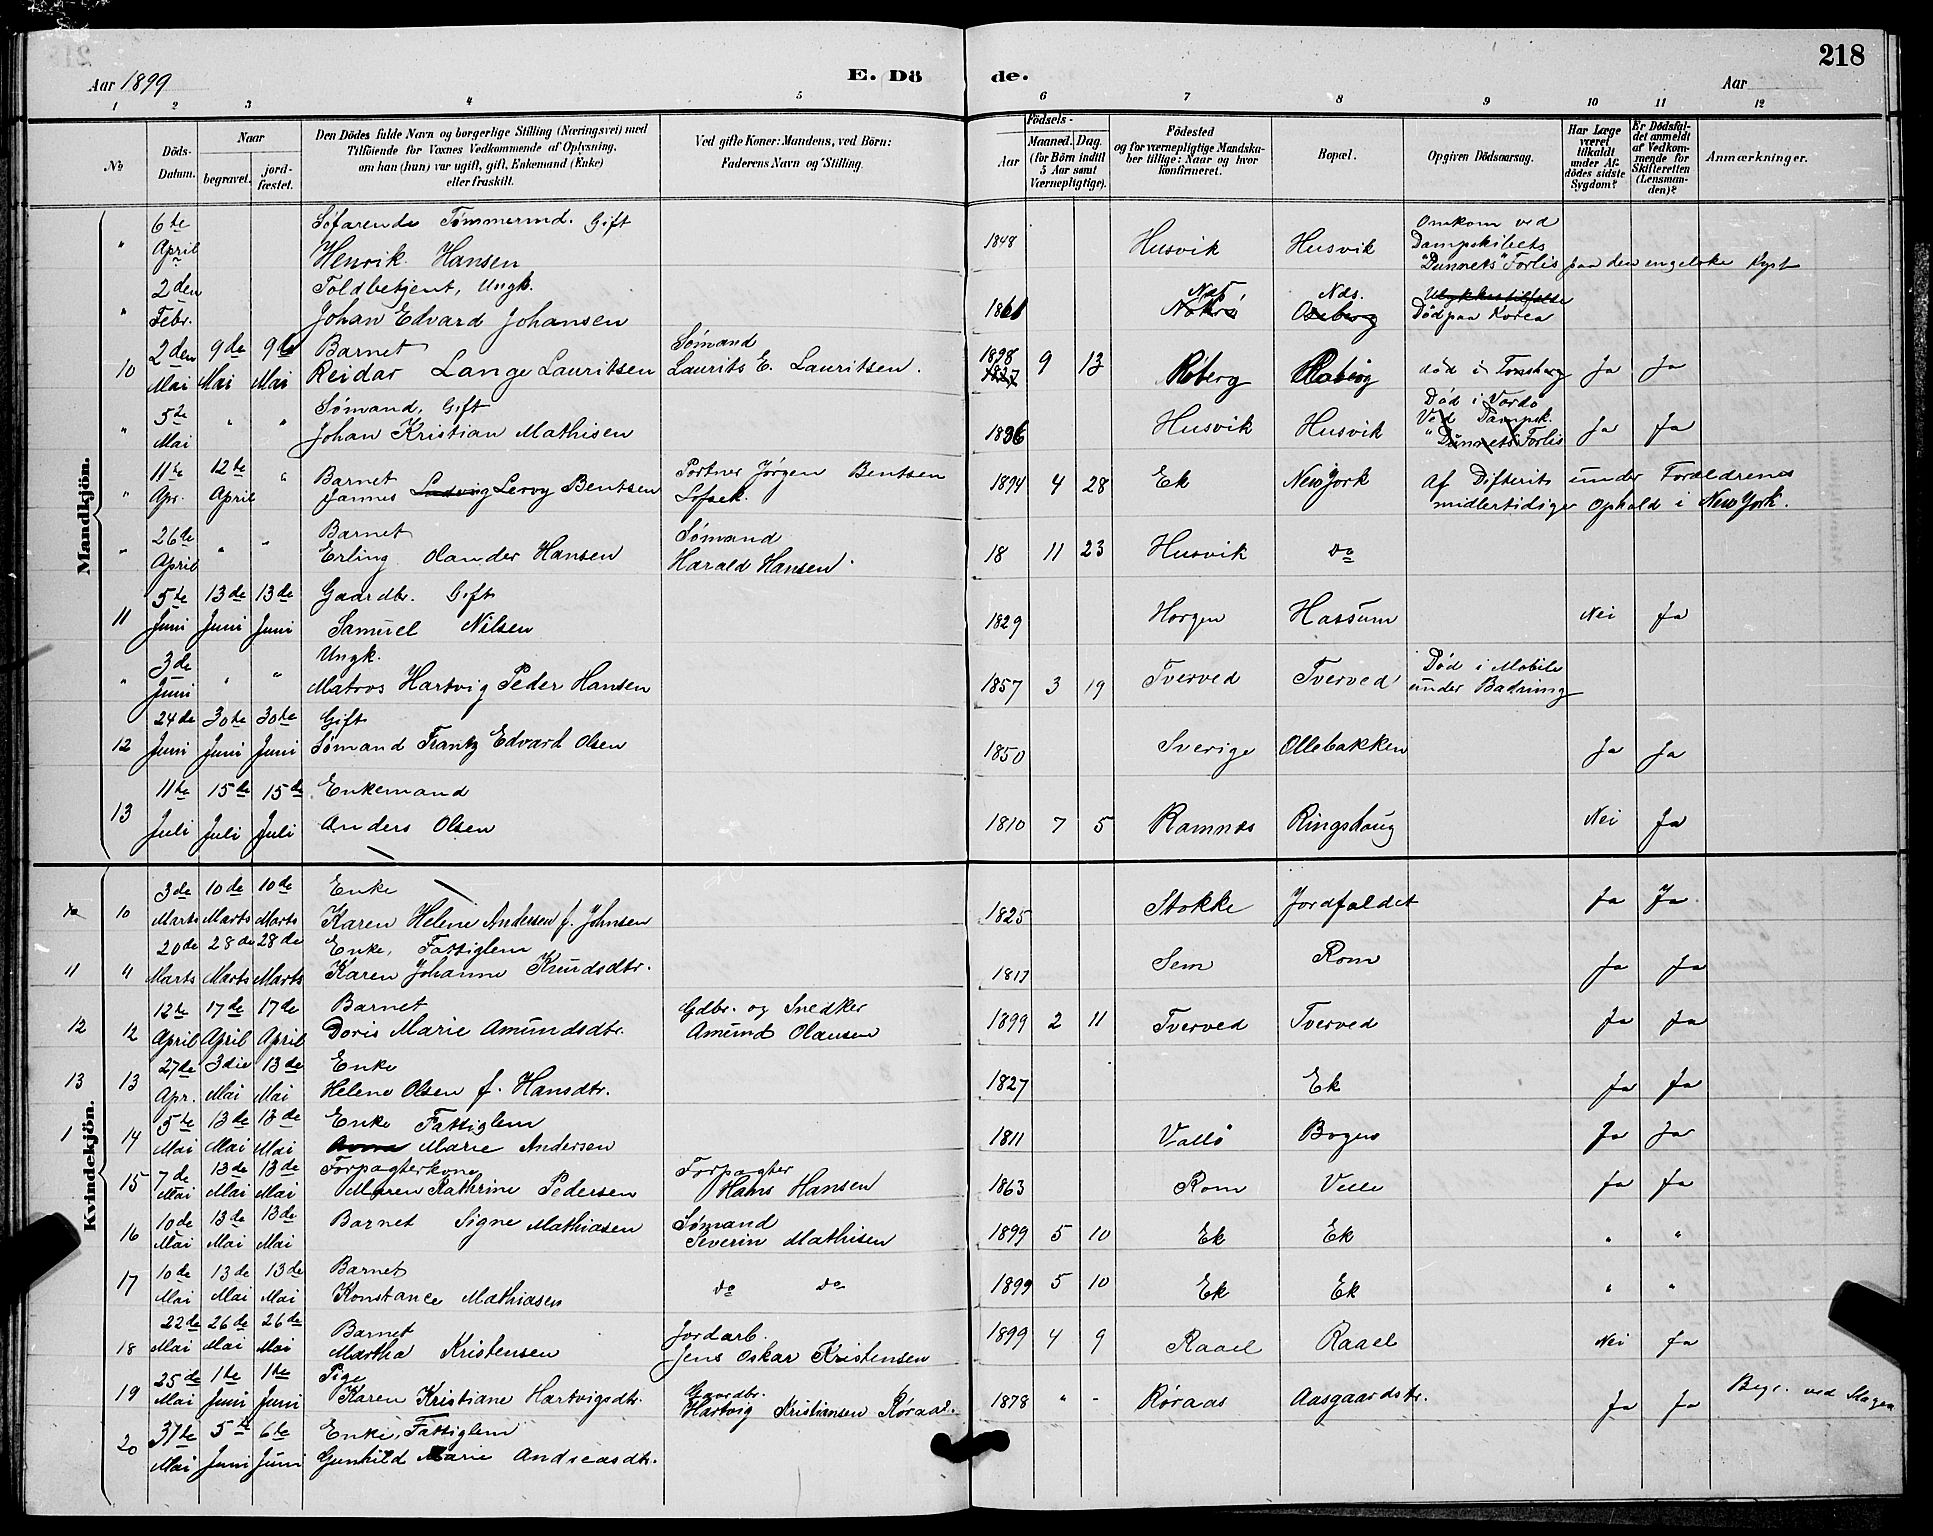 218
Aar 1899
E. Dö de.
Aar
1 2 3 4 5 6 7 8 9 10 11 12
No
Döds-Datum.
Naar
begravet.
jord-fæstet.
Den Dödes fulde Navn og borgerlige Stilling (Næringsvei) med
Tilföiende for Voxnes Vedkommende af Oplysning,
om han (hun) var ugift, gift, Enkemand (Enke)
eller fraskilt.
Ved gifte Koner: Mandens, ved Börn:
Faderens Navn og Stilling.
Födsels-
Aar
Maaned. Dag.
(for Börn indtil
5 Aar samt
Værnepligtige).
Födested
og for værnepligtige Mandska-
ber tillige: Naar og hvor
konfirmeret.
Bopæl.
Opgiven Dödsaarsag.
Har Læge
været
tilkaldt
under Af-
dödes sidste
Sygdom?
Er Dödsfal-
det anmeldt
af Vedkom-
mende for
Skifteretten
(Lensman-
den)?
Anmærkninger.
Mandkjön.
6te Søfarende Tømmermd. Gift Omkom ved
" April Henrik Hansen 1848 Husvik Husvik Dampskibets
"Dunnets" Forlis paa den engelske Kyst
2den Toldbetjent, Ungk. Nds. Ulykkestilfælde
" Febr. Johan Edvard Johansen 1861 Død paa Korea
2den 9de 9de Barnet Sømand 1898
10 Mai Mai Mai Reidar Lange Lauritsen Laurits E. Lauritsen. 9 13 Røberg Røberg død i Tønsberg Ja Ja
5te Sømand, Gift Død i Vardø
" Mai " " Johan Kristian Mathisen 1836 Husvik Husvik Ved Dampsk. "Dunnets" Forlis Ja Ja
11te 12te " Barnet Portner Jørgen Bentsen
" Apr. April Jannes Ludvig Leroy Bentsen 1894 4 28 Ek New York Af Difterit under Forældrenes
midlertidige Ophold i New York.
26de Barnet Sømand
" April " " Erling Olander Hansen Harald Hansen 18 11 23 Husvik do
5te 13de 13de Gaardbr. Gift
11 Juni Juni Juni Samuel Nilsen 1829 Horgen Hassum Nei Ja
3de Ungk. Død i Mobile
" Juni " " Matros Hartvig Peder Hansen 1857 3 19 Tverved Tverved under Badning
24de 30te 30te Gift
12 Juni Juni Juni Sømand Frantz Edvard Olsen 1850 Sverige Ollebakken Ja Ja
11te 15de 15de Enkemand
13 Juli Juli Juli Anders Olsen 1810 7 5 Ramnæs Ringshaug Nei Ja
Kvindekjön.
3de 10de 10de Enke
10 Marts Marts Marts Karen Helene Andersen f. Johnsen 1825 Stokke Jordfaldet Ja Ja
20de 28de 28de Enke, Fattiglem
11 11 Marts Marts Marts Karen Johanne Knudsdtr. 1817 Sem Rom Ja Ja
12te 17de 17de Barnet Gdbr. og Snedker
12 12 April April April Doris Marie Amundsdtr. Amund Olausen 1899 2 11 Tverved Tverved Ja Ja
27de 3die 13de Enke
13 13 Apr. Mai Mai Helene Olsen f. Hansdtr. 1827 Ek Ja Ja
5te 13de 13de Enke Fattiglem
1 14 Mai Mai Mai Anna Marie Andersen 1811 Vallø Bogen Ja Ja
7de 13de 13de Forpagterkone Forpagter
15 Mai Mai Mai Maren Kathrine Pedersen Hans Hansen 1863 Rom Velle Ja Ja
10de 13de 13de Barnet Signe Mathiasen Sømand
16 Mai Mai Mai Severin Mathisen 1899 5 10 Ek Ek " "
10de 13de 13de Barnet
17 Mai Mai Mai Konstance Mathiasen do do 1899 5 10 Ek Ek " "
22de 26de 26de Barnet Jordarb.
18 Mai Mai Mai Martha Kristensen Jens Oskar Kristensen 1899 4 9 Raael Raael Nei Ja
25de 1te 1te Pige Gaardbr.
19 Mai Juni Juni Karen Kristiane Hartvigsdtr. Hartvig Kristiansen Røraas. 1878 " - Røraas Aasgaardstr. Ja Ja Begr. ved Slagen
31te 5te 6te Enke, Fattiglem
20 Mai Juni Juni Gunhild Marie Andreasdtr.